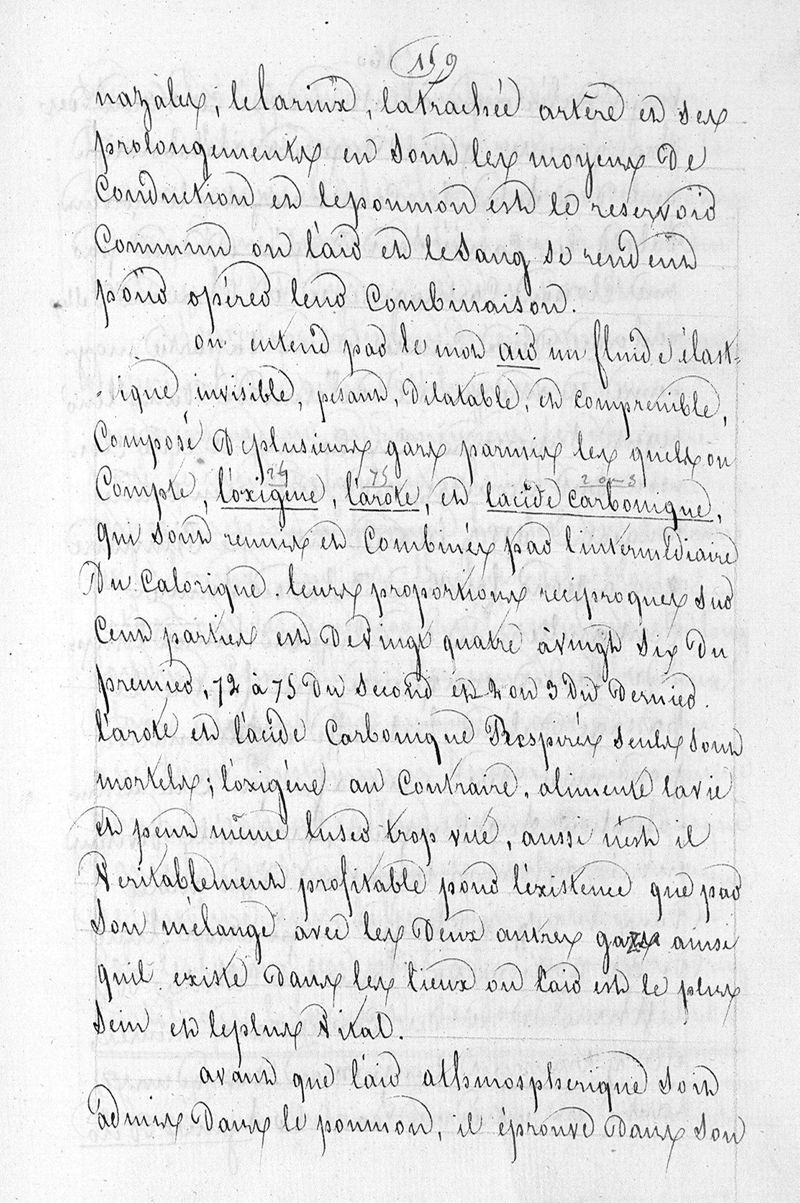 159
nazales, le larinx, la trachée artère et ses
prolongements en sont les moyens de
Conduction et le poumon est le reservoir
Commun ou l'air et le sang se rendent
pour operer leur Combinaison.
on entend par le mot air un fluide élast-
-ique, invisible, pesant, dilatable, et comprenible,
Composé de plusieurs gazs parmis les quels on
24 75 2 ou 3
Compte, l'oxigène, l'azote, et l'acide carbonique,
qui sont reunis et Combinés par l'intermédiaire
Du Calorique. leurs proportions reciproques sur
Cent parties est de vingt quatre à vingt six du
premier, 72 à 75 du second et 2 ou 3 du dernier.
l'azote et l'acide Carbonique Respirés seuls sont
mortels; l'oxigéne au Contraire, alimente la vie
et peut même l'user trop vite, aussi n'est il
Veritablement profitable pour l'éxistence que par
Son mélange avec les deux autres gazs ainsi
quil existe dans les lieux ou l'air est le plus
Sein et le plus Vital.
avant que l'air athmospherique soit
admis dans le poumon, il éprouve dans son